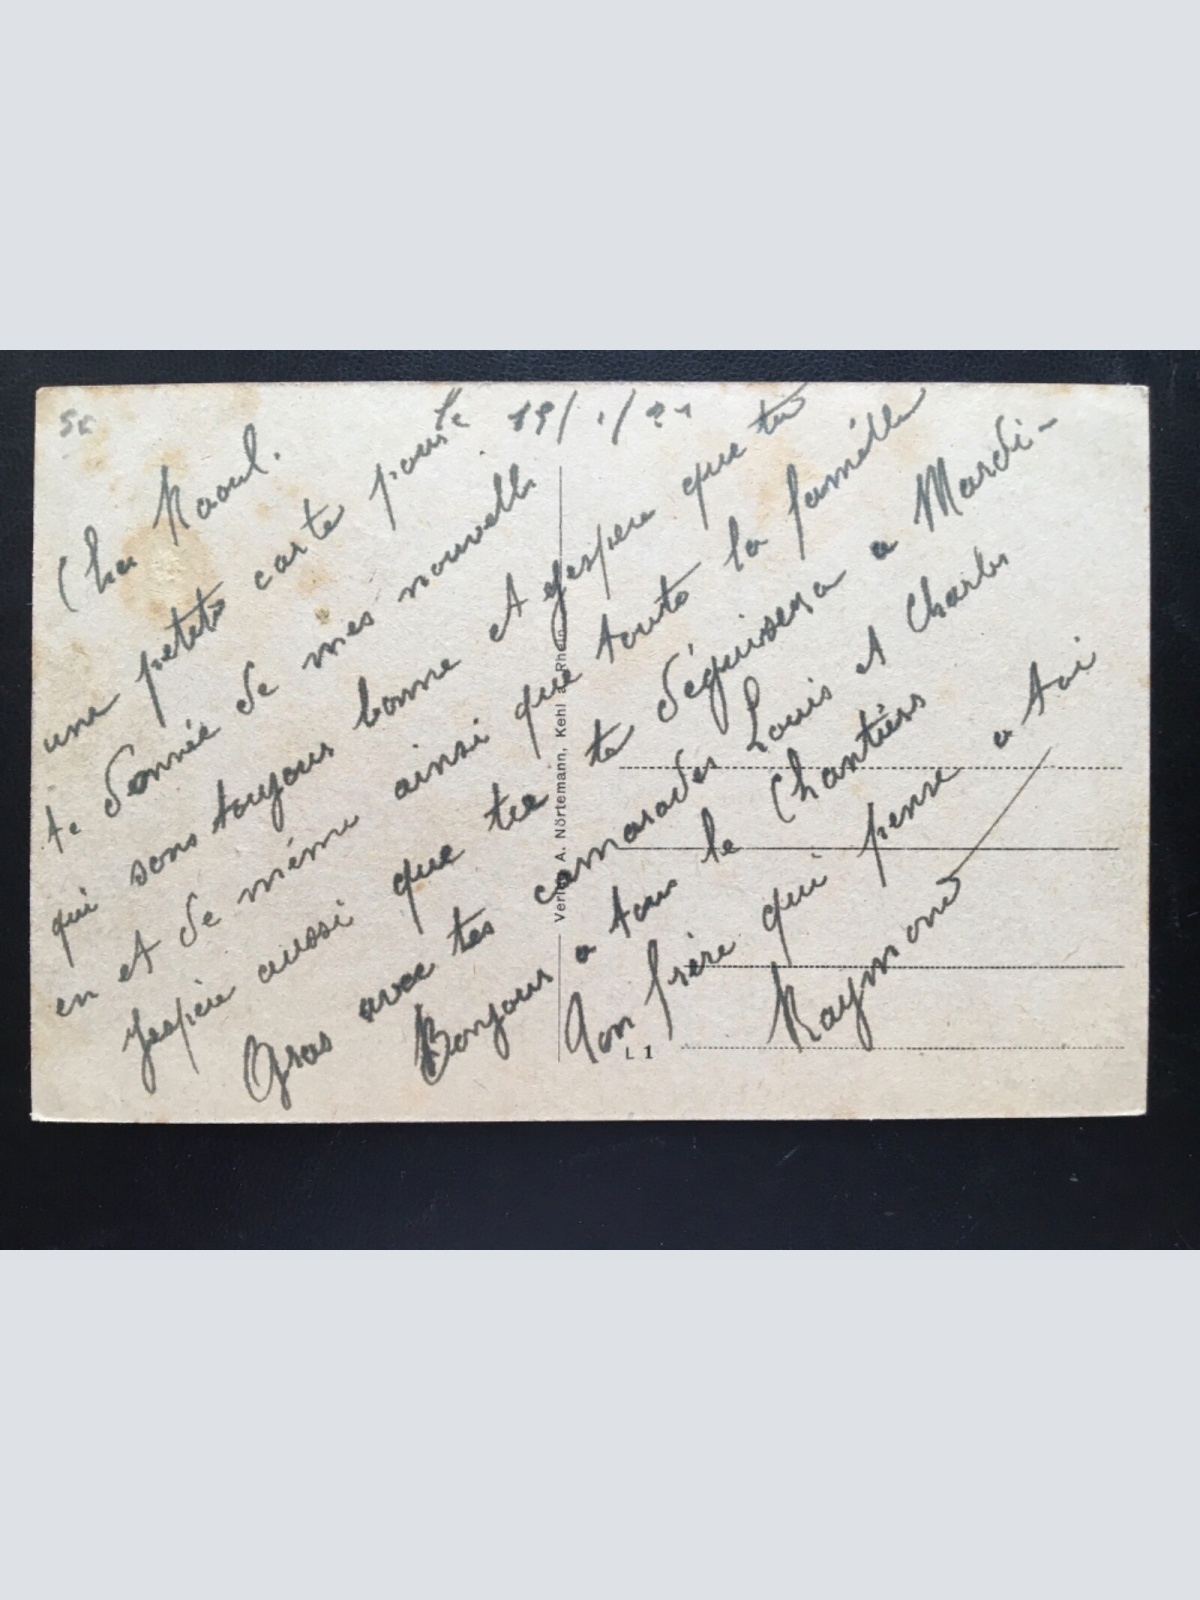 le 19/1/21
Cher Raoul.
une peteto carte pour
te donnée de mes nouvelle
qui sons toujous bonne et jespere que tu
en et de même ainsi que touto la famille
Jespère aussi que tu te déguisera a Mardi-
Gras avec tes camarades Louis et Charles
Bonjour a tous le Chantiers
Ton frère qui pense a toi
Raymond
Verlag A. Nörtemann, Kehl a. Rhein
L 1